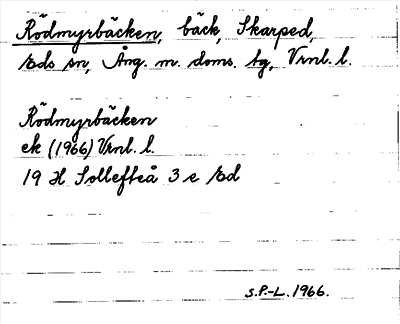 Rödmyrbäcken, bäck, Skarped,
Eds sn, Ång. m. doms. tg, Vrnl. l.
Rödmyrbäcken
ek (1966) Vrnl. l.
19 H Sollefteå 3 e Ed
S.P.-L. 1966.